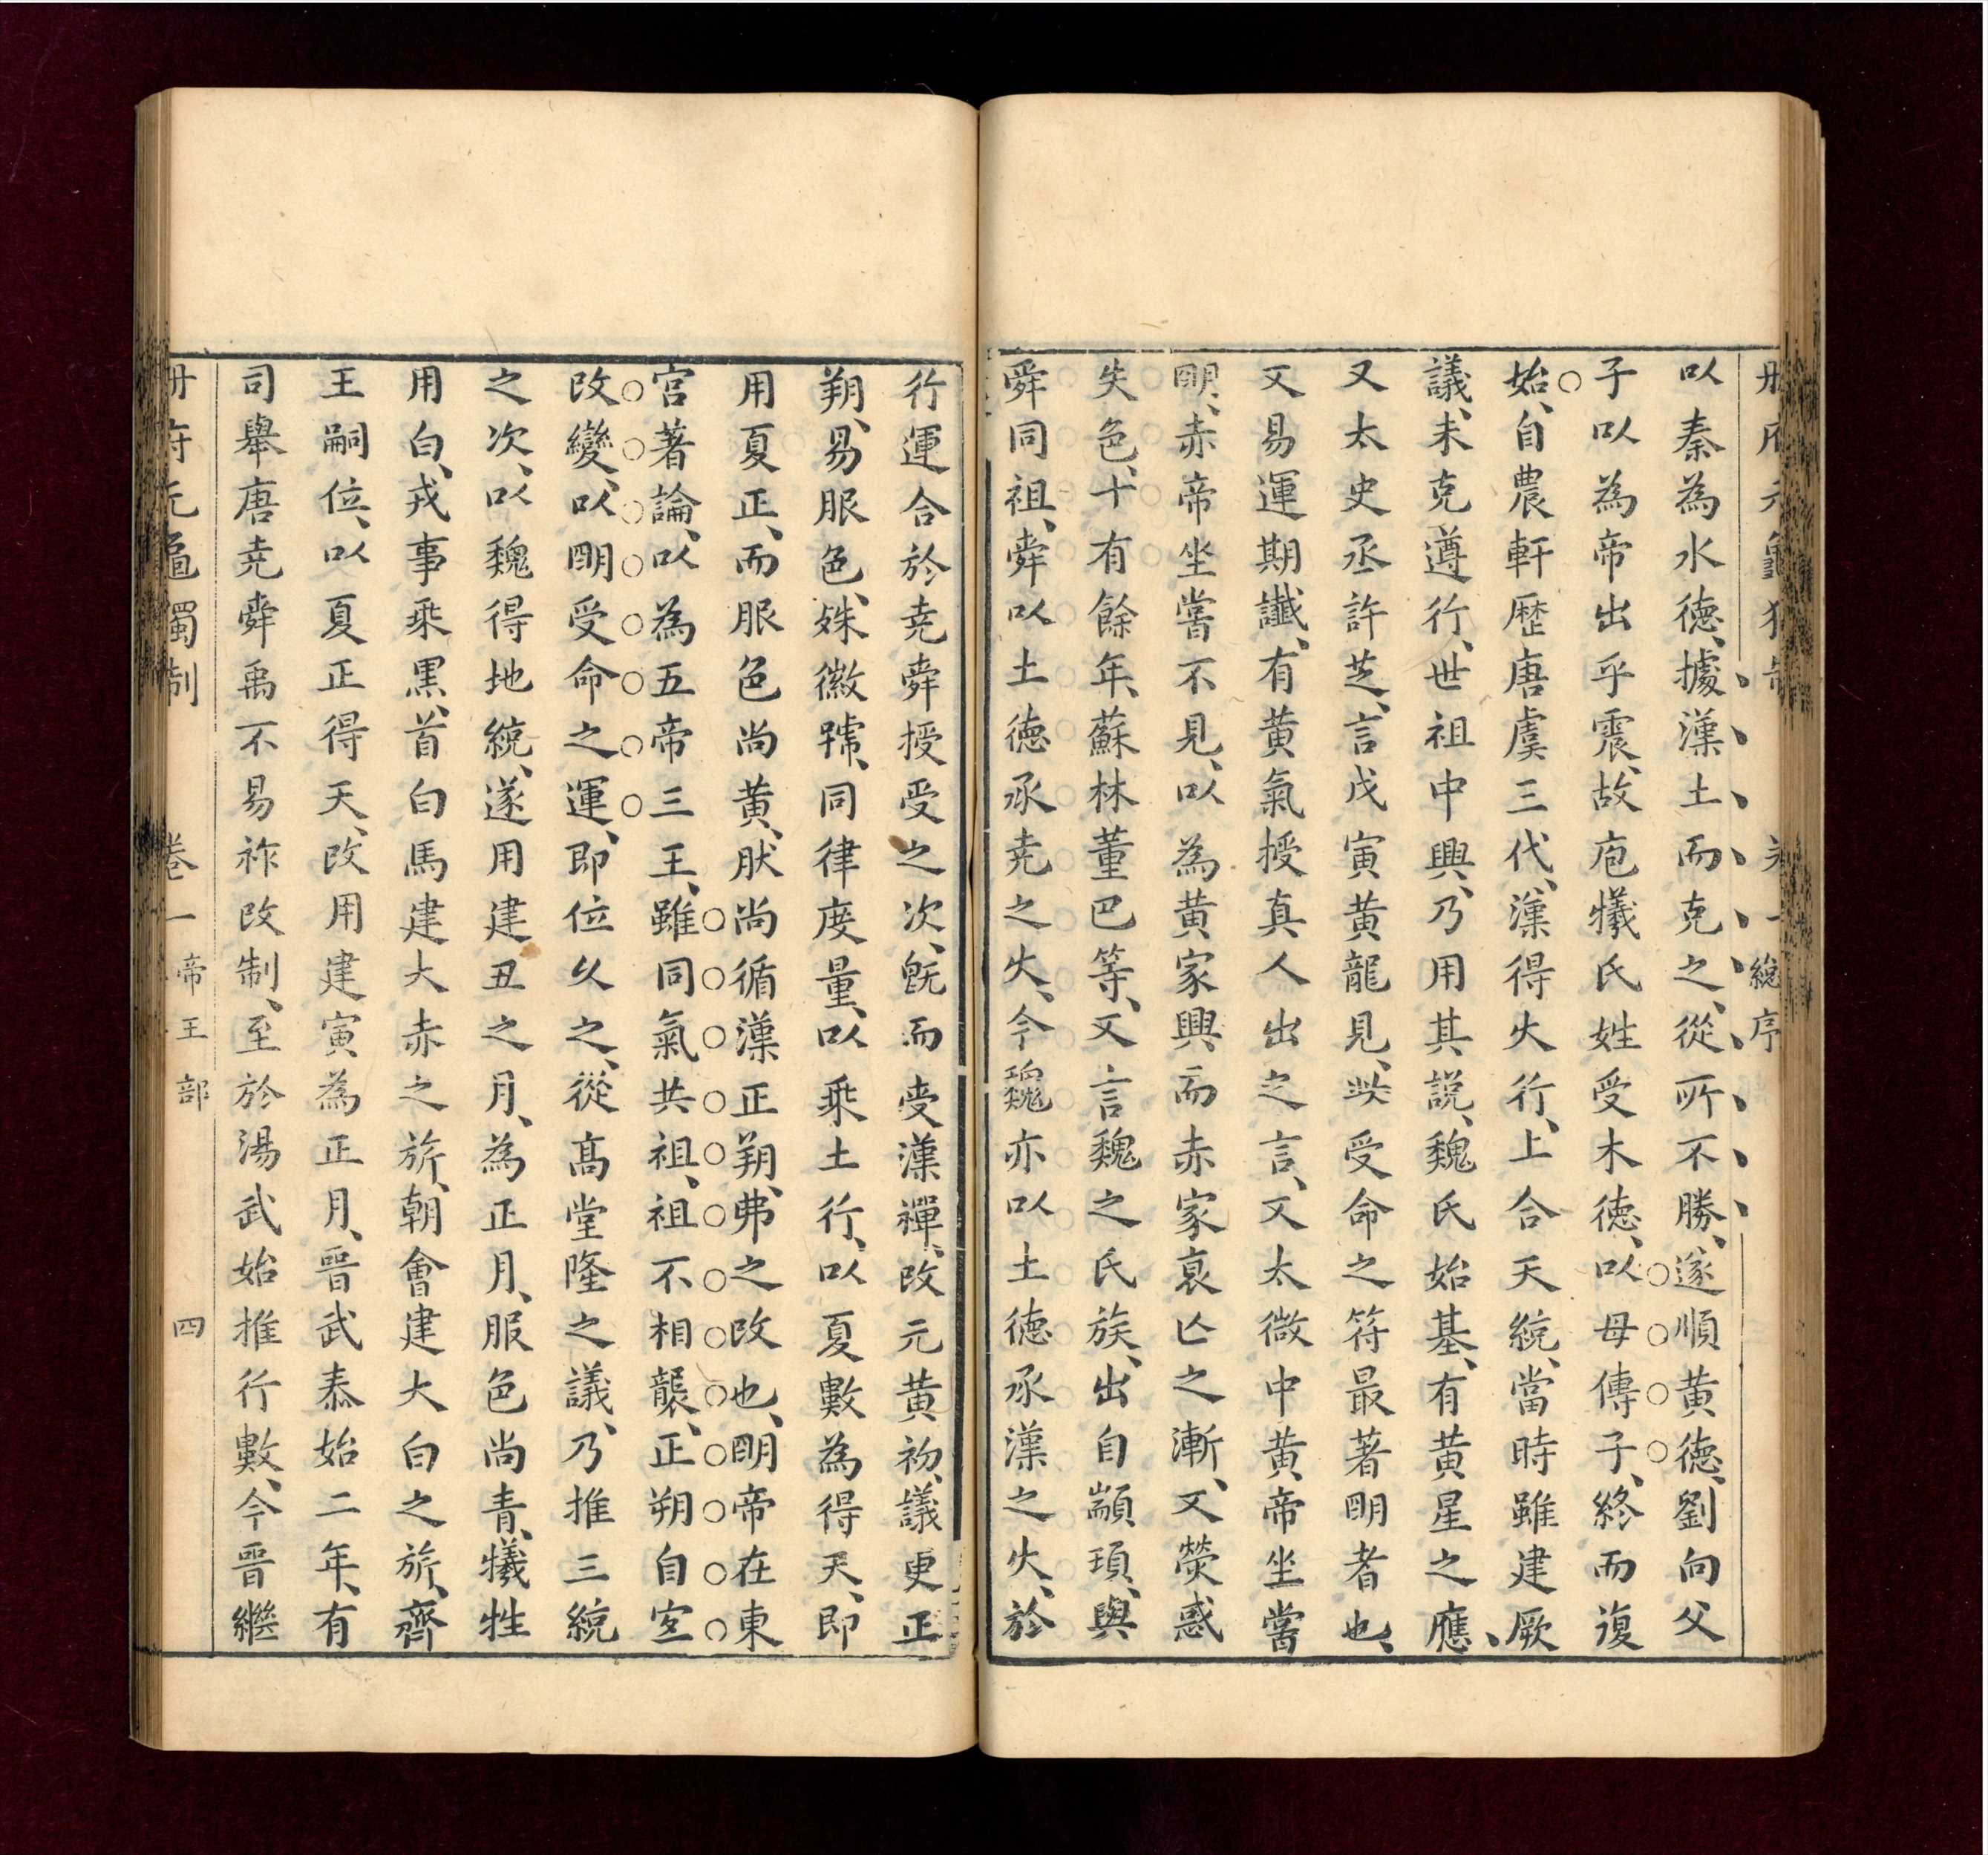 冊府元龜獨制 卷一 總序
以秦為水德、據漢土而克之、從所不勝、遂順黃德、劉向父
子以為帝出乎震、故庖犧氏姓受木德、以母傳子、終而復
始、自農軒歷唐虞三代、漢得火行、上合天統、當時雖建厥
議、未克遵行、世祖中興、乃用其說、魏氏始基、有黃星之應、
又太史丞許芝、言戊寅黃龍見、此受命之符最著明者也、
又易運期讖、有黃氣授真人出之言、又太微中黃帝坐嘗
明、赤帝坐嘗不見、以為黃家興而赤家衰亡之漸、又熒惑
失色、十有餘年、蘇林董巴等、又言魏之氏族、出自顓頊、與
舜同祖、舜以土德承堯之火、今魏亦以土德承漢之火、於
行運合於堯舜授受之次、既而受漢禪、改元黃初、議更正
朔、易服色、殊徽號、同律度量、以乘土行、以夏數為得天、即
用夏正、而服色尚黃、然尚循漢正朔、弗之改也、明帝在東
宮著論、以為五帝三王、雖同氣共祖、祖不相襲、正朔自宜
改變、以明受命之運、即位久之、從高堂隆之議、乃推三統
之次、以魏得地統、遂用建丑之月、為正月、服色尚青、犧牲
用白、戎事乘黑、首白馬建大赤之旂、朝會建大白之旂、齊
王嗣位、以夏正得天、改用建寅為正月、晉武泰始二年、有
司舉唐堯舜禹不易祚改制、至於湯武始推行數、今晉繼
冊府元龜獨制 卷一 帝王部 四